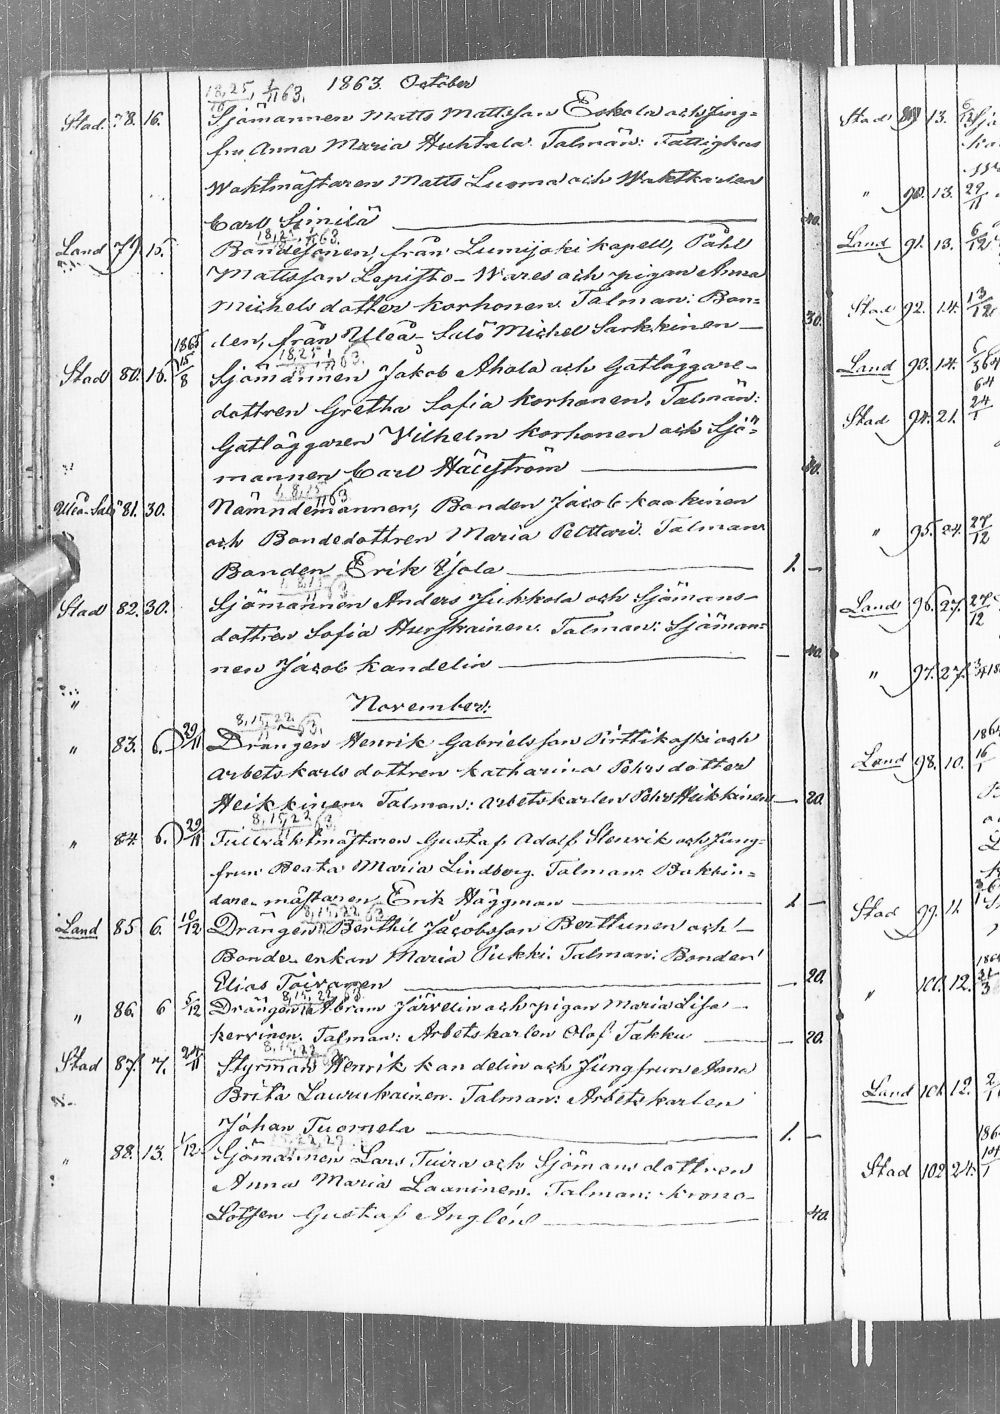 1863. October
18,25, 1/11 63.
Stad. 78. 16. Sjömannen Matts Mattsson Eskola och Jung-
fru Anna Maria Huhtala. Talmän: Fattighus
Waktmästaren Matts Luoma och Waktkarlen
Carl Similä 40.
18,25, 1/11 63.
Land 79. 15. Bondesonen, från Lumijoki kapell, Påhl
Mattsson Lepistö-Wares och pigan Anna
Michelsdotter Korhonen. Talman: Bon-
den, från Uleå-Salo Michel Sarkkinen 30.
18,25, 1/11 63.
Stad 80. 16. 1865 15/8 Sjömannen Jakob Ahola och Gatläggare-
dottren Gretha Sofia Korhonen. Talmän:
Gatläggaren Wilhelm Korhonen och Sjö-
mannen Carl Häggström 40.
1,8,15/11 63.
Uleå-Salo 81. 30. Nämndemannen, Bonden Jacob Kaakinen
och Bondedottren Maria Pelttari. Talman
Bonden Erik Ojola 1. —
1,8,15/11 63.
Stad 82. 30. Sjömannen Anders Jukkola och Sjömans-
dottren Sofia Hurskainen. Talman: Sjöman-
nen Jacob Kandelin — 40.
November:
8,15,22/11 63.
" 83. 6. 29/11 Drängen Henrik Gabrielsson Pirttikoski och
Arbetskarlsdottren Katharina Pehrsdotter
Heikkinen. Talman: Arbetskarlen Pehr Heikkinen — 20.
8,15,22/11 63.
" 84. 6. 29/11 Tullvaktmästaren Gustaf Adolf Stenrik och Jung-
frun Beata Maria Lindberg. Talman: Bokbin-
dare-mästaren Erik Häggman 1 —
8,15,22/11 63.
Land 85. 6. 10/12 Drängen Berthil Jacobsson Berttunen och
Bonde-enkan Maria Pukki. Talman: Bonden
Elias Toivanen — 20.
8,15,22/11 63.
" 86. 6 5/12 Drängen Abram Järvelin och pigan Maria Lisa
Kervinen. Talman: Arbetskarlen Olof Takku — 20.
8,15,22/11 63.
Stad 87. 7. 24/11 Styrman Henrik Kandelin och Jungfrun Anna
Brita Laurukainen. Talman: Arbetskarlen
Johan Tuomela 1. —
15,22,29
" 88. 13. 1/12 Sjömannen Lars Tuira och Sjömansdottren
Anna Maria Laaninen. Talman: Krono-
Lotsen Gustaf Anglén 40.
Stad 89 13.
" 90. 13. 29/11
Land 91. 13. 6/12
Stad 92. 14. 13/12
Land 93. 14. 6/3 64
Stad 94. 21. 64 24/1
" 95. 24. 27/12
Land 96. 27. 27/12
" 97. 27.
Land 98. 10. 16/1
Stad 99. 11.
" 100. 12. 31/3
Land 101. 12.
Stad 102 24.